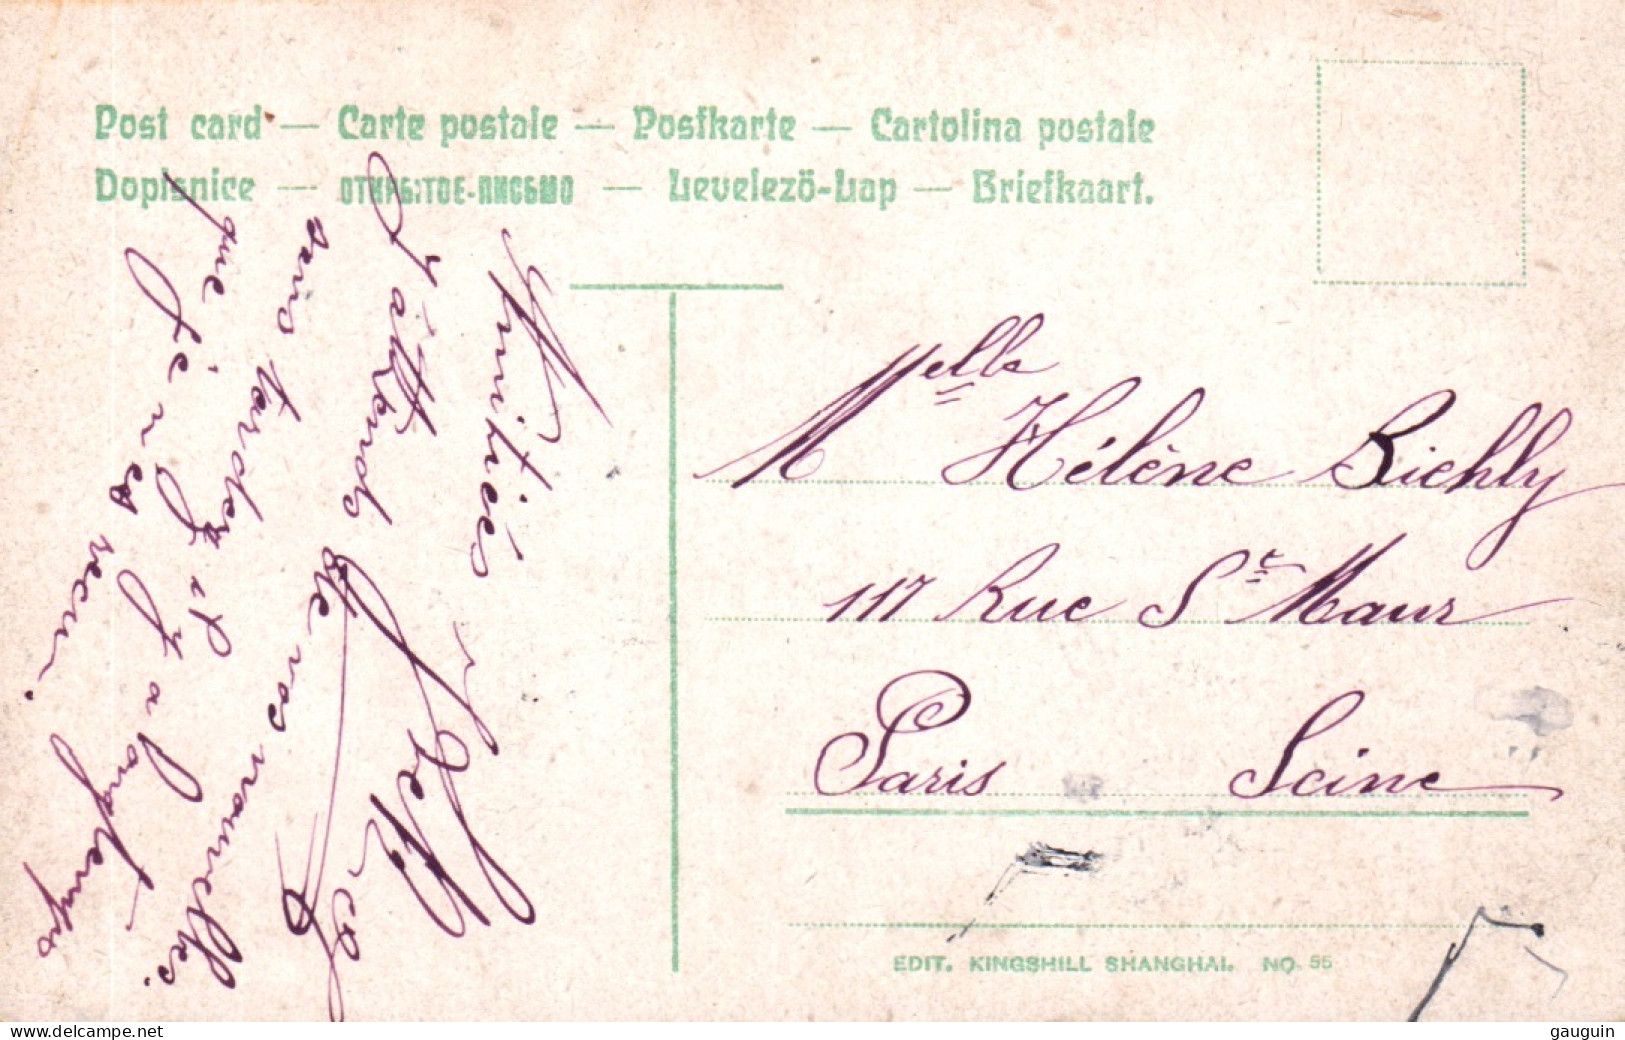 Post card — Carte postale — Postkarte — Cartolina postale
Dopisnice — ОТКРЫТОЕ-ПИСЬМО — Levelezö-Lap — Briefkaart.
Amitiés
J'attends de vos nouvelles.
Vous tardez
que je n'ai
il y a longtemps
reçu.
Melle Hélène Biehly
117 Rue St Maur
Paris Seine
EDIT. KINGSHILL SHANGHAI. NO. 55
www.delcampe.net
gauguin